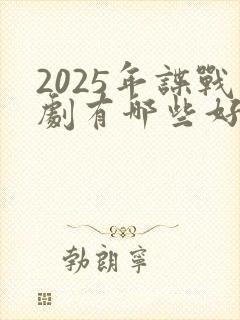 2025年諜戰
劇有哪些好
勃朗寧